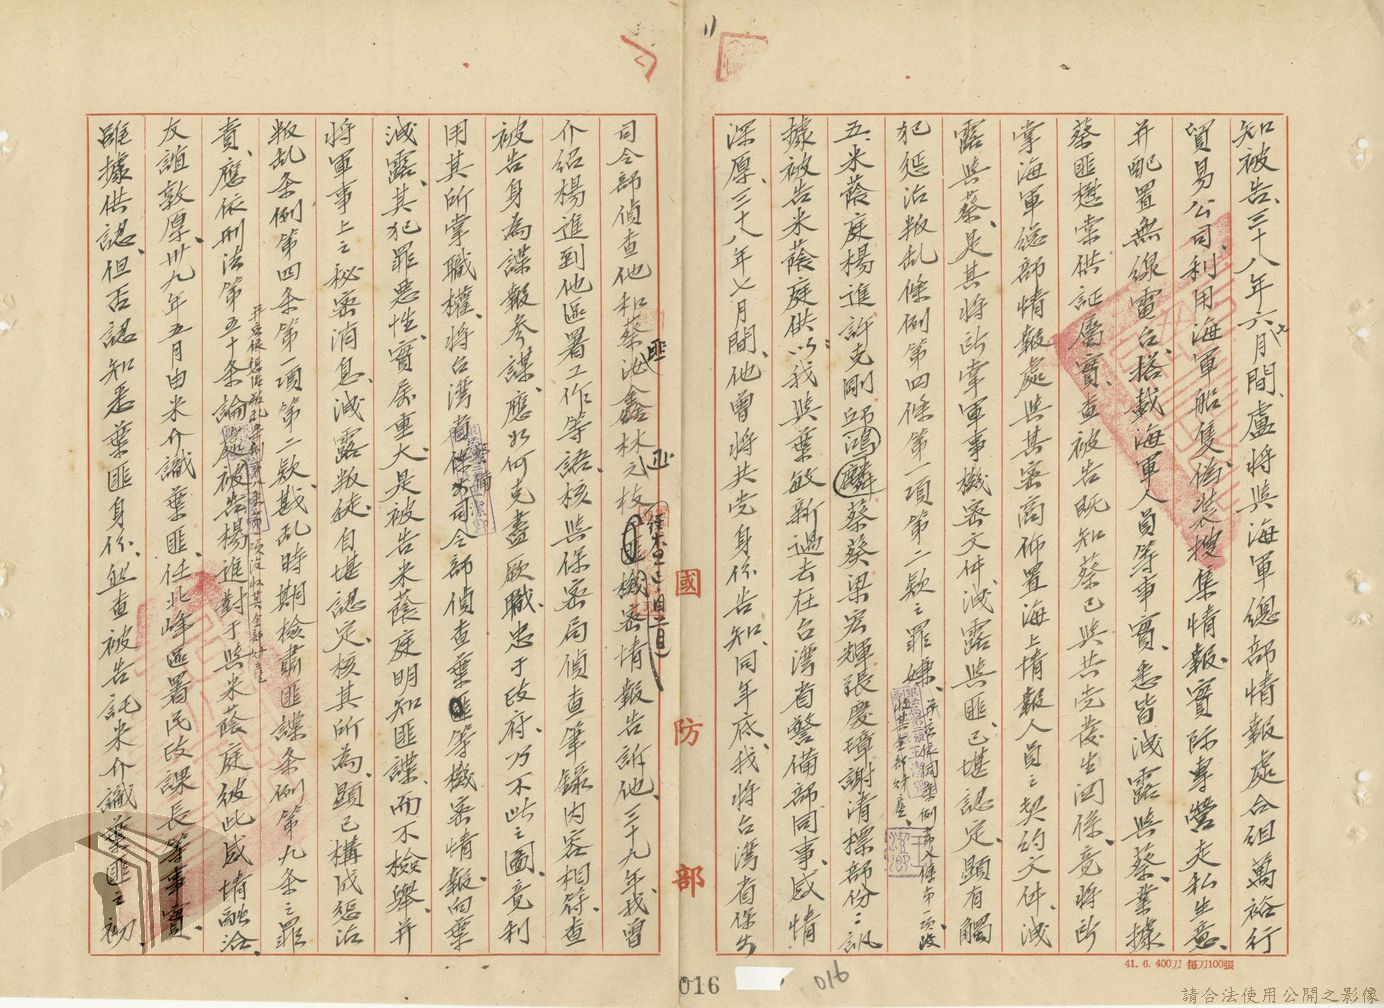 知被告三十八年六七月間、盧將與海軍總部情報處合組萬裕行
貿易公司、利用海軍船隻、偽裝搜集情報、實際專營走私生意、
并配置無線電台、搭載海軍人員等事實、悉皆洩露與蔡、業據
蔡匪懋棠供証屬實、查被告既知蔡已與共党發生関係、竟將所
掌海軍總部情報處與其密商佈置海上情報人員之契約文件、洩
露與蔡、是其將所掌軍事機密文件洩露與匪、已堪認定、顯有觸
犯懲治叛乱條例第四條第一項第二款之罪嫌、并應依同條例第八條第一項沒
收其全部財產、
五、米蔭庭楊進許克剛邱鴻麟蔡葵梁宏輝張慶璋謝清標部份：訊
據被告米蔭庭供：「我與葉敏新過去在台灣省警備部同事、感情
深厚、三十八年七月間、他曾將共党身份告知、同年底、我將台灣省保安
司令部偵查他和蔡匪海鑫林元枝匪 機密情報告訴他、三十九年我曾
介紹楊進到他區署工作等語、核與保密局偵查筆錄內容相符、查
被告身為諜報參謀、應如何克盡厥職、忠于政府、乃不此之圖、竟利
用其所掌職權、將台灣省保安司令部偵查葉匪等機密情報、向葉
洩露、其犯罪惡性、實屬重大、是被告米蔭庭明知匪諜、而不檢舉、并
將軍事上之秘密消息、洩露叛徒、自堪認定、核其所為、顯已構成懲治
叛乱条例第四条第一項第二款、戡乱時期檢肅匪諜条例第九条之罪
責、應依刑法第五十条論處、被告楊進對于與米蔭庭彼此感情融洽、
并應依懲治叛乱条例第八条第一項沒收其全部財產
友誼敦厚、卅九年五月由米介識葉匪、任北峰區署民政課長等事實、
雖據供認、但否認知悉葉匪身份、然查被告託米介識葉匪之初、
國防部
41. 6. 400刀 每刀100張
016
016
請合法使用公開之影像